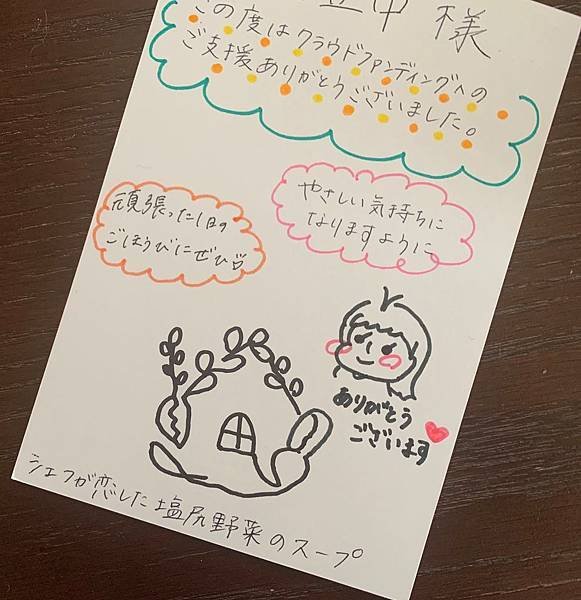 様
この度はクラウドファンディングへの
ご支援ありがとうございました。
頑張った1日の
ごほうびにぜひ
やさしい気持ちに
なりますように
ありがとう
ございます
シェフが恋した塩尻野菜のスープ